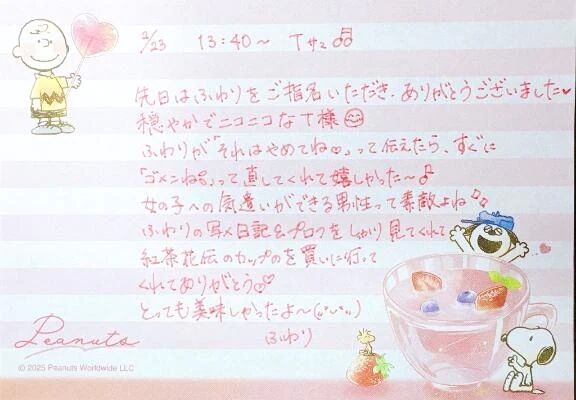 2/23 13:40～ Tサマ♫
先日はふわりをご指名いただき、ありがとうございました♥
穏やかでニコニコなT様😊
ふわりが「それはやめてね♡。」って伝えたら、すぐに
「ゴメンね💦」って直してくれて嬉しかった～♪
女の子への気遣いができる男性って素敵よね♪
ふわりの写メ日記&プロフをしっかり見てくれて
紅茶花伝のカップのを買いに行って
くれてありがとう💕
とっても美味しかったよ～(⁠,,⁠•⁠•⁠,,⁠)
ふわり
Peanuts
© 2025 Peanuts Worldwide LLC